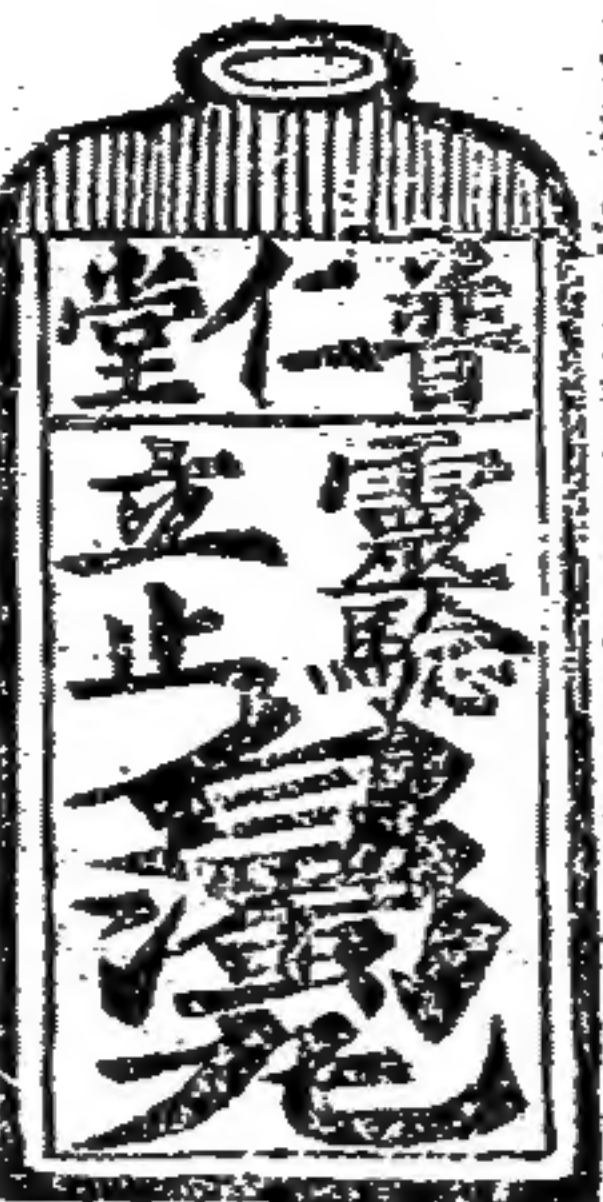 普仁堂
靈驗
立止
白濁丸